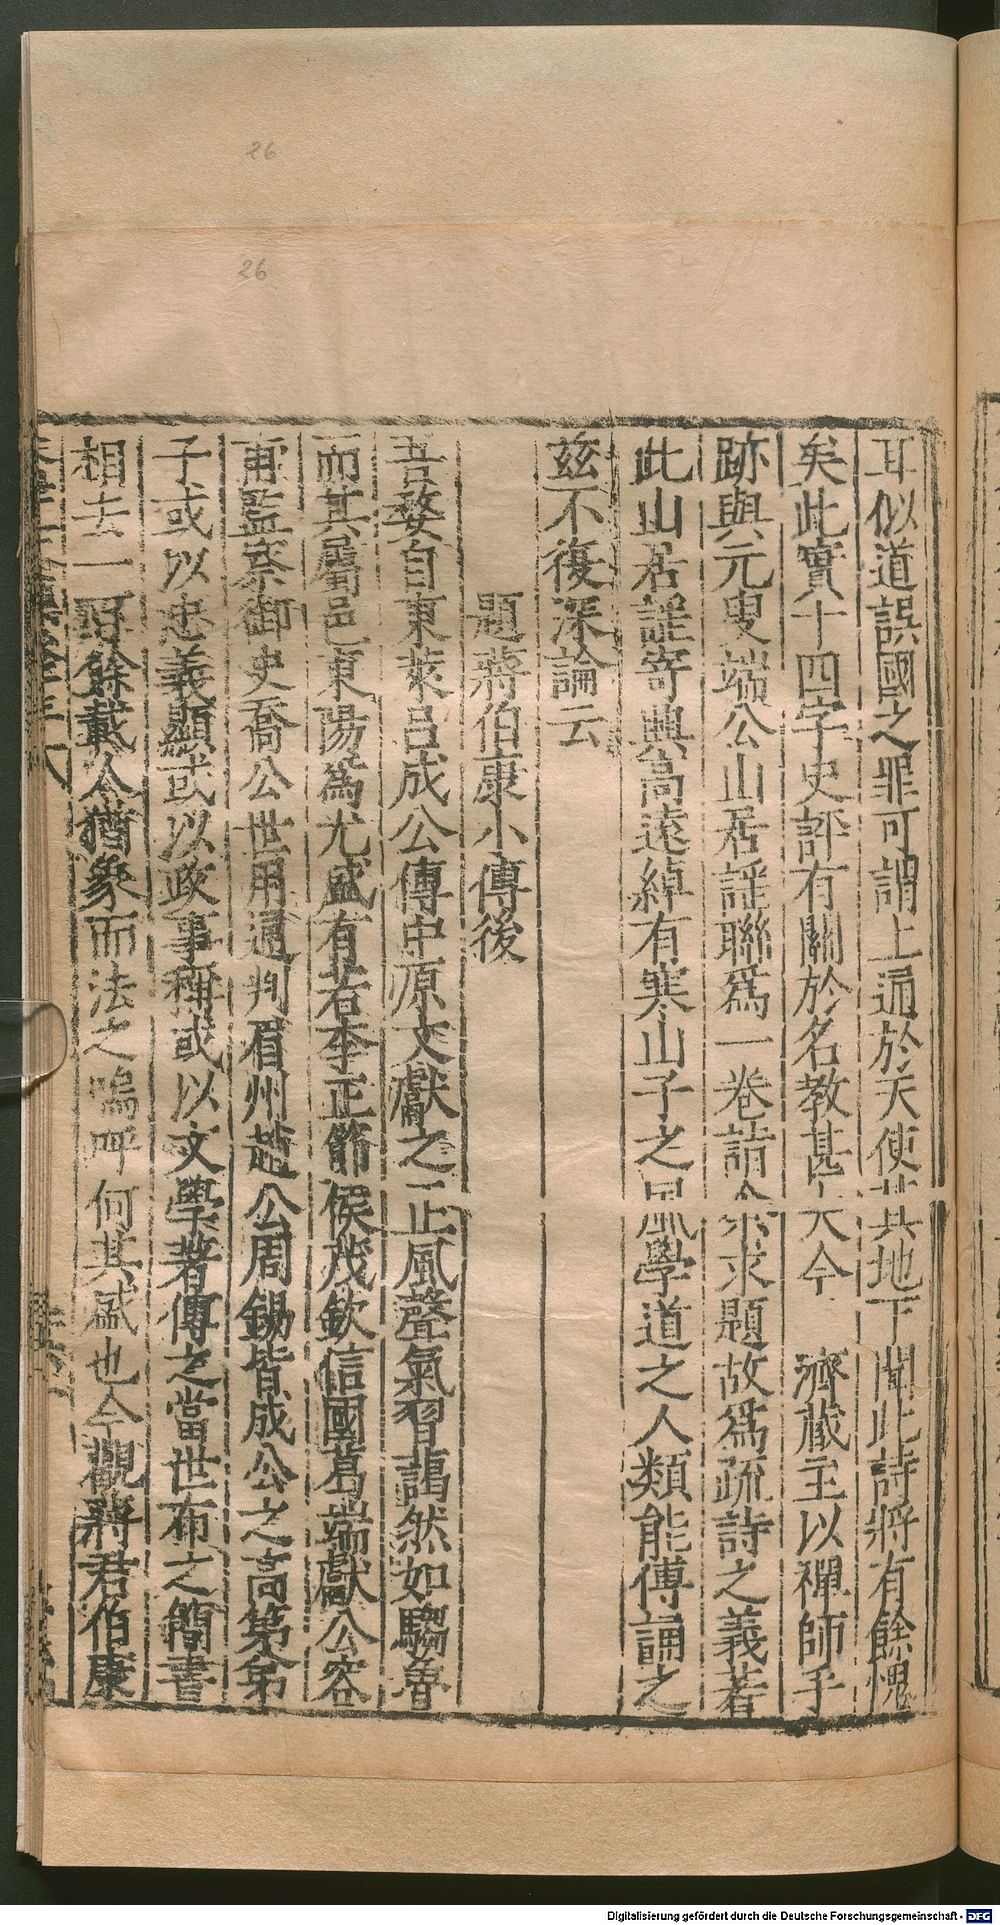 耳似道誤國之罪可謂上通於天使其地下聞此詩將有餘愧
矣此實十四字史評有關於名教甚大今 濟藏主以禪師手
跡與元叟端公山居謡聯爲一卷請余求題故爲疏詩之義若
此山居謡寄興高遠綽有寒山子之風學道之人類能傳誦之
茲不復深論云
題蔣伯康小傳後
吾婺自東萊呂成公傳中原文獻之正風聲氣習藹然如鄒魯
而其屬邑東陽爲尤盛有若李正節侯茂欽信國葛端獻公容
甫監察御史喬公世用通判眉州趙公周錫皆成公之高第弟
子或以忠義顯或以政事稱或以文學著傳之當世布之簡書
相去一百餘載人猶象而法之嗚呼何其盛也今觀蔣君伯康
26
26
Digitalisierung gefördert durch die Deutsche Forschungsgemeinschaft - DFG